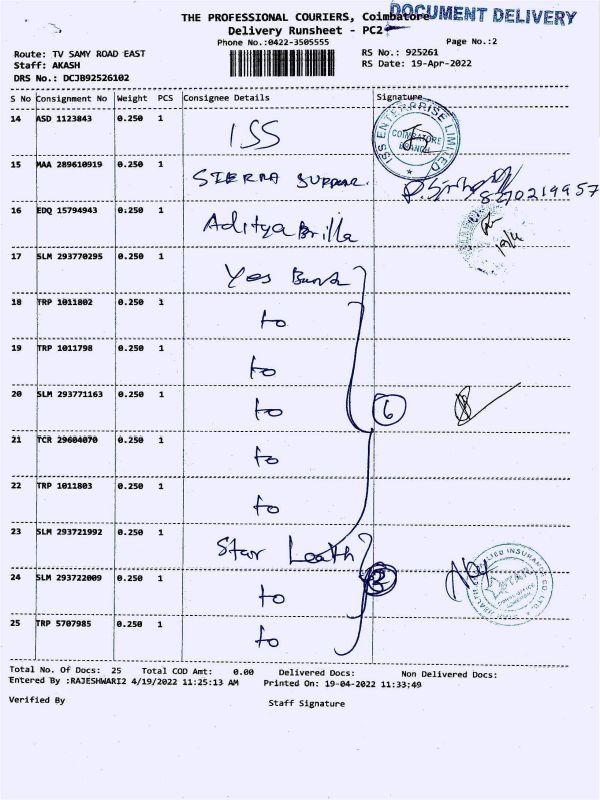 THE PROFESSIONAL COURIERS, Coimbatore
DOCUMENT DELIVERY
Delivery Runsheet - PC2
Phone No.:0422-3505555
Page No.:2
Route: TV SAMY ROAD EAST
RS No.: 925261
Staff: AKASH
RS Date: 19-Apr-2022
DRS No.: DCJB92526102
S No Consignment No Weight PCS Consignee Details Signature
14 ASD 1123843 0.250 1 ISS
ISS ENTERPRISE LIMITED
COIMBATORE
BRANCH
15 MAA 289610919 0.250 1 SIERRA
16 EDQ 15794943 0.250 1 Aditya Birlla
19/4
17 SLM 293770295 0.250 1 Yes Bank
18 TRP 1011802 0.250 1 to
19 TRP 1011798 0.250 1 to
20 SLM 293771163 0.250 1 to 6
21 TCR 29604070 0.250 1 to
22 TRP 1011803 0.250 1 to
23 SLM 293721992 0.250 1 Star Leath
24 SLM 293722009 0.250 1 to 3
STAR
25 TRP 5707985 0.250 1 to
Total No. Of Docs: 25 Total COD Amt: 0.00 Delivered Docs: Non Delivered Docs:
Entered By :RAJESHWARI2 4/19/2022 11:25:13 AM Printed On: 19-04-2022 11:33:49
Verified By Staff Signature